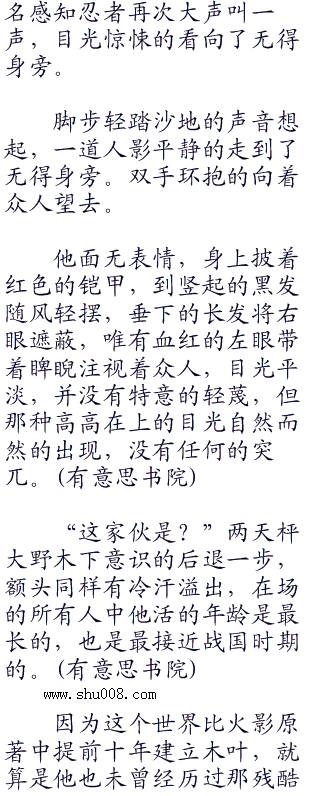 名感知忍者再次大声叫一
声，目光惊悚的看向了无得
身旁。
脚步轻踏沙地的声音想
起，一道人影平静的走到了
无得身旁。双手环抱的向着
众人望去。
他面无表情，身上披着
红色的铠甲，到竖起的黑发
随风轻摆，垂下的长发将右
眼遮蔽，唯有血红的左眼带
着睥睨注视着众人，目光平
淡，并没有特意的轻蔑，但
那种高高在上的目光自然而
然的出现，没有任何的突
兀。(有意思书院)
“这家伙是？”两天枰
大野木下意识的后退一步，
额头同样有冷汗溢出，在场
的所有人中他活的年龄是最
长的，也是最接近战国时期
的。(有意思书院)
www.shu008.com
因为这个世界比火影原
著中提前十年建立木叶，就
算是他也未曾经历过那残酷